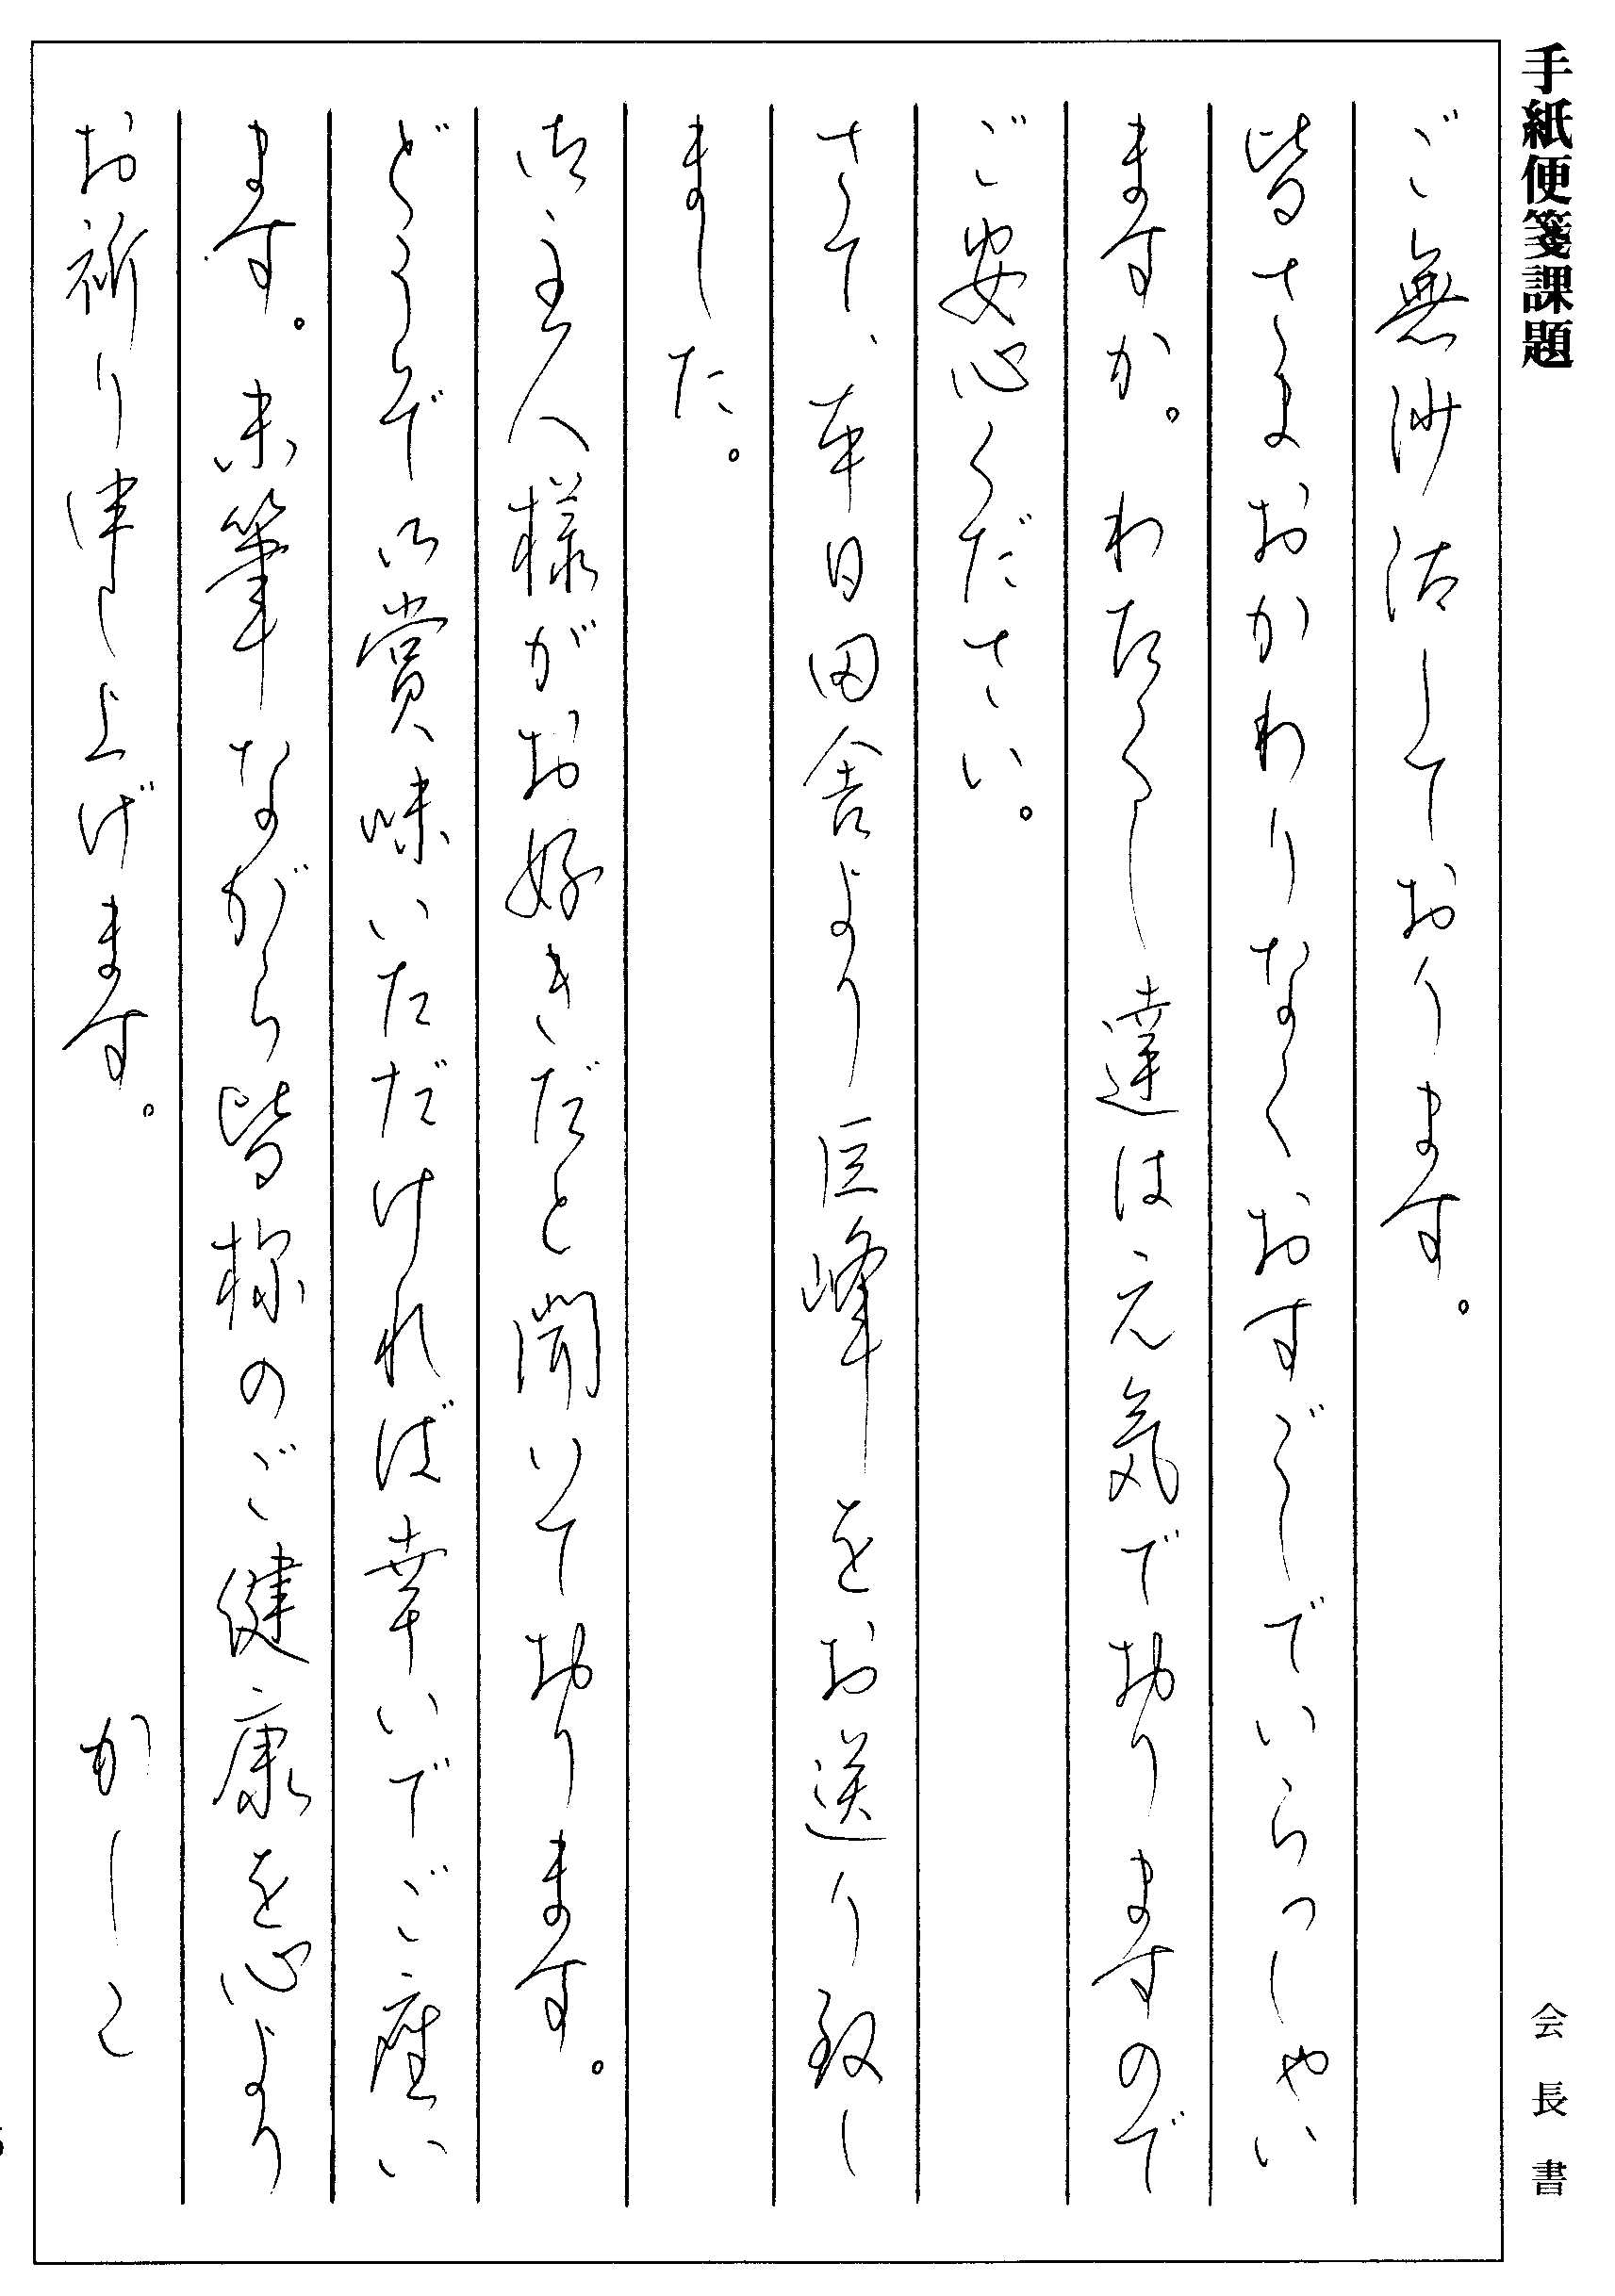 手紙便箋課題
会長書
ご無沙汰しております。
皆さまおかわりなくおすごしでいらっしやい
ますか。わたくし達は元気でおりますので
ご安心ください。
さて、本日田舎より巨峰をお送り致し
ました。
御主人様がお好きだと聞いております。
どうぞご賞味いただければ幸いでご座い
ます。末筆ながら皆様のご健康を心より
お祈り申し上げます。
かしこ